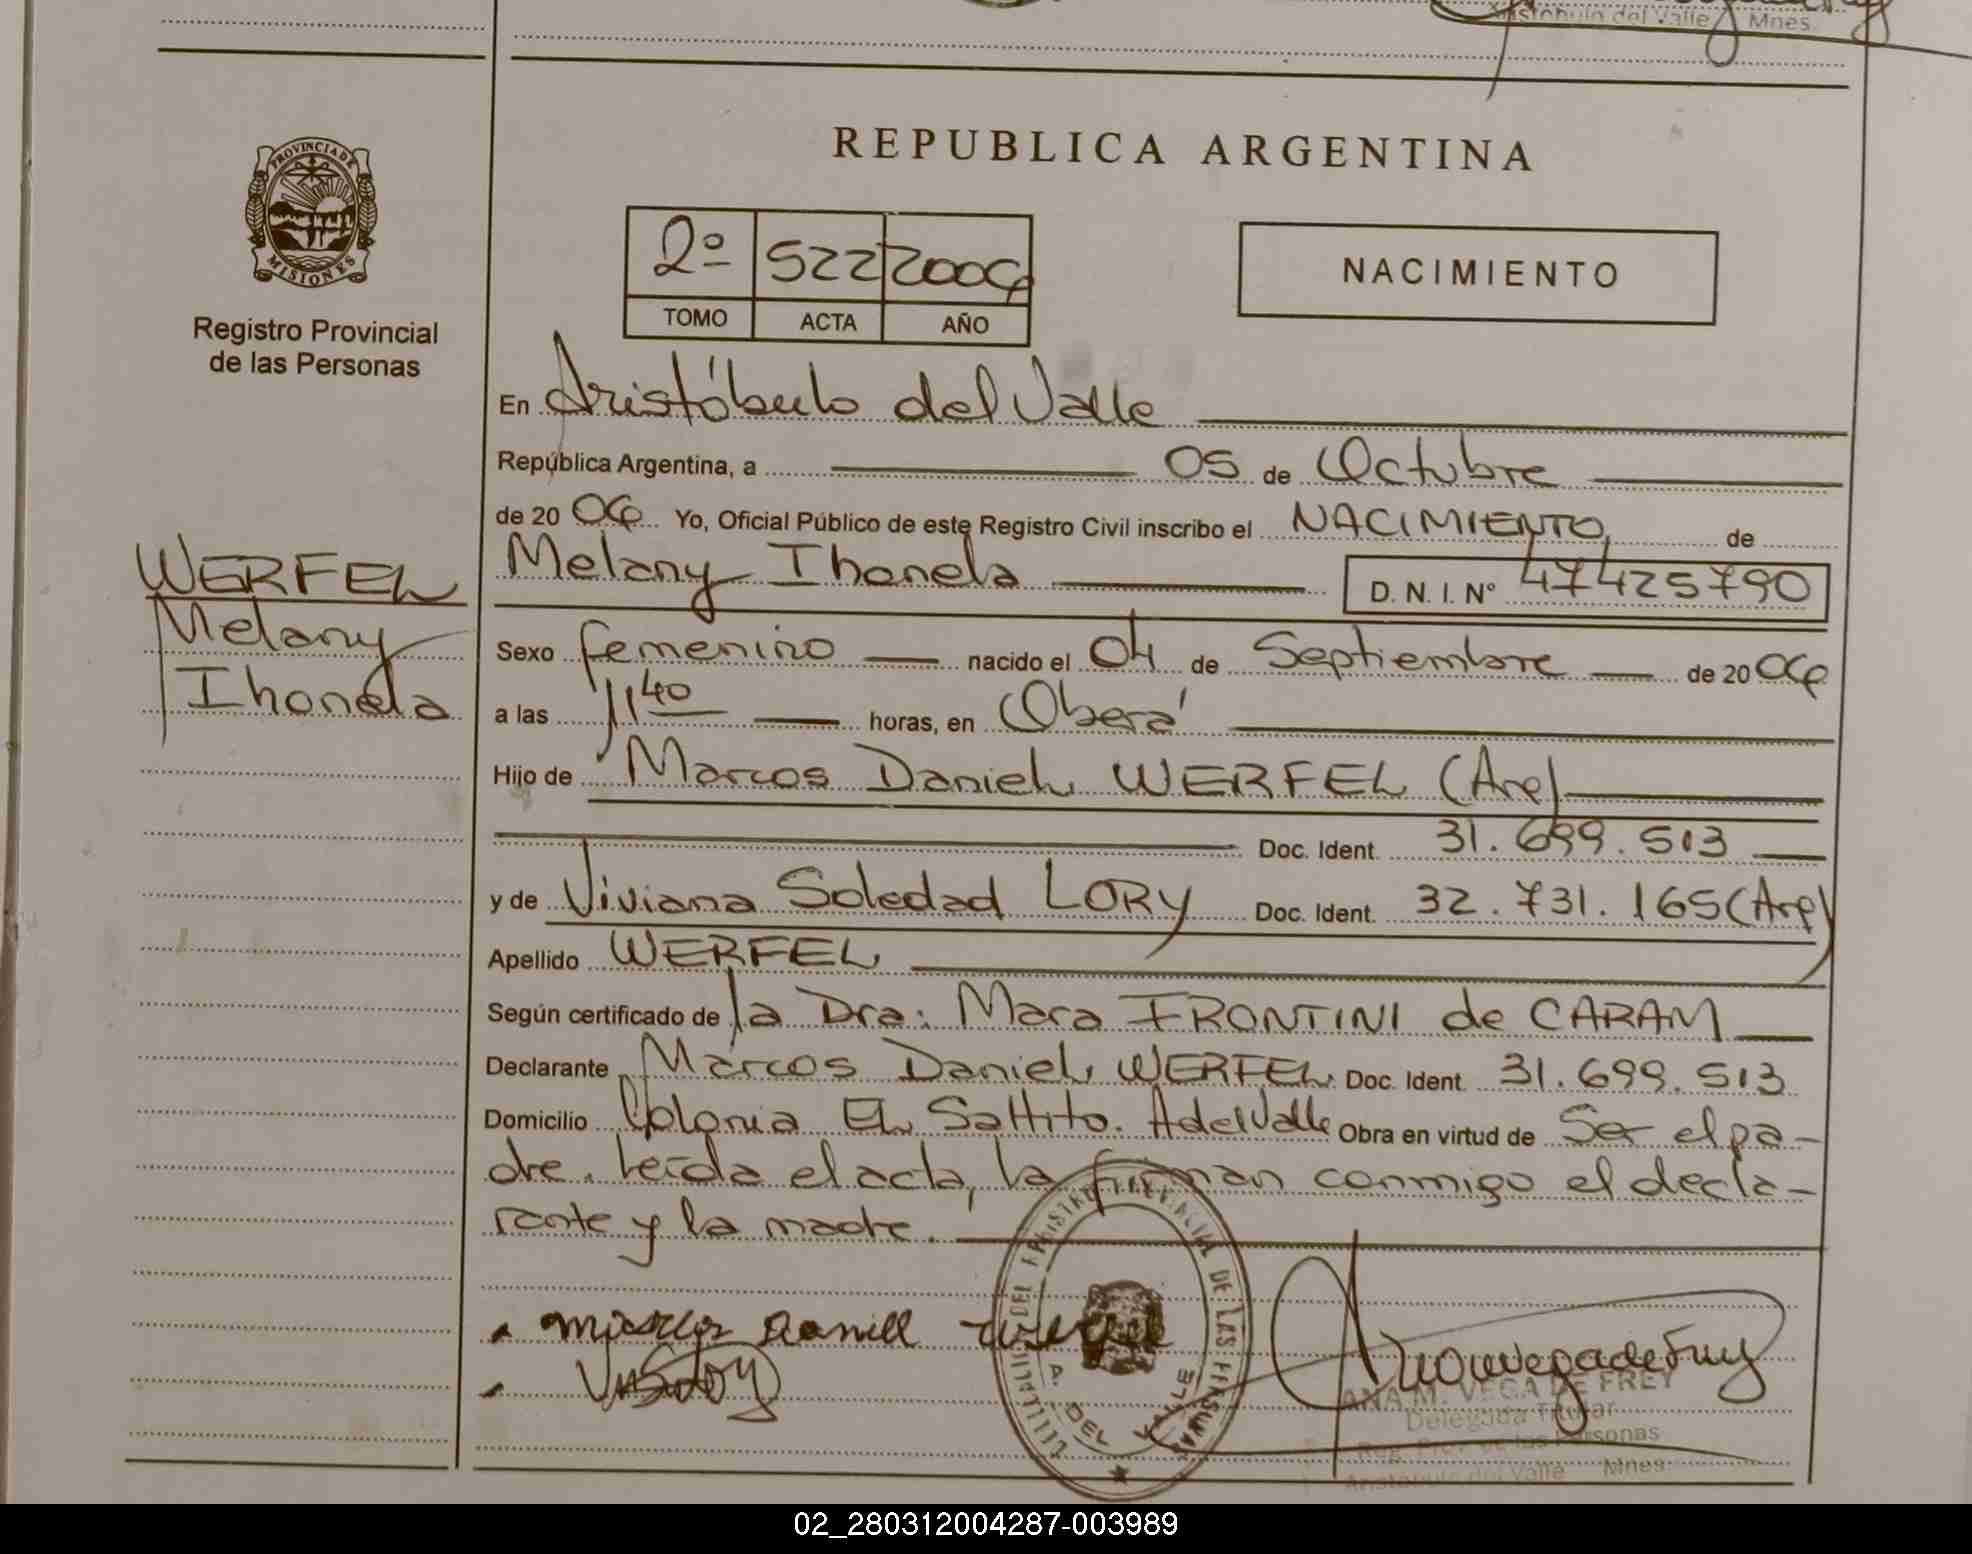 Aristóbulo del Valle Mnes.
REPUBLICA ARGENTINA
PROVINCIA DE
MISIONES
Registro Provincial
de las Personas
2º 522 2006
TOMO ACTA AÑO
NACIMIENTO
En Aristóbulo del Valle
República Argentina, a 05 de Octubre
de 20 06 Yo, Oficial Público de este Registro Civil inscribo el NACIMIENTO de
WERFEL
Melany
Ihonela
Melany Ihonela D. N. I. Nº 47425790
Sexo femenino nacido el 04 de Septiembre de 20 06
a las 11 40 horas, en Oberá
Hijo de Marcos Daniel WERFEL (Arg)
Doc. Ident. 31.699.513
y de Viviana Soledad LORY Doc. Ident. 32.731.165 (Arg)
Apellido WERFEL
Según certificado de la Dra. Mara FRONTINI de CARAM
Declarante Marcos Daniel WERFEL Doc. Ident. 31.699.513
Domicilio Colonia El Saltito. A del Valle Obra en virtud de Ser el pa-
dre. Leída el acta, la firman conmigo el decla-
rante y la madre.
DE LAS PERSONAS
A. DEL VALLE
ANA M. VEGA DE FREY
Delegada Titular
Reg. Prov. de las Personas
Aristóbulo del Valle Mnes.
02_280312004287-003989